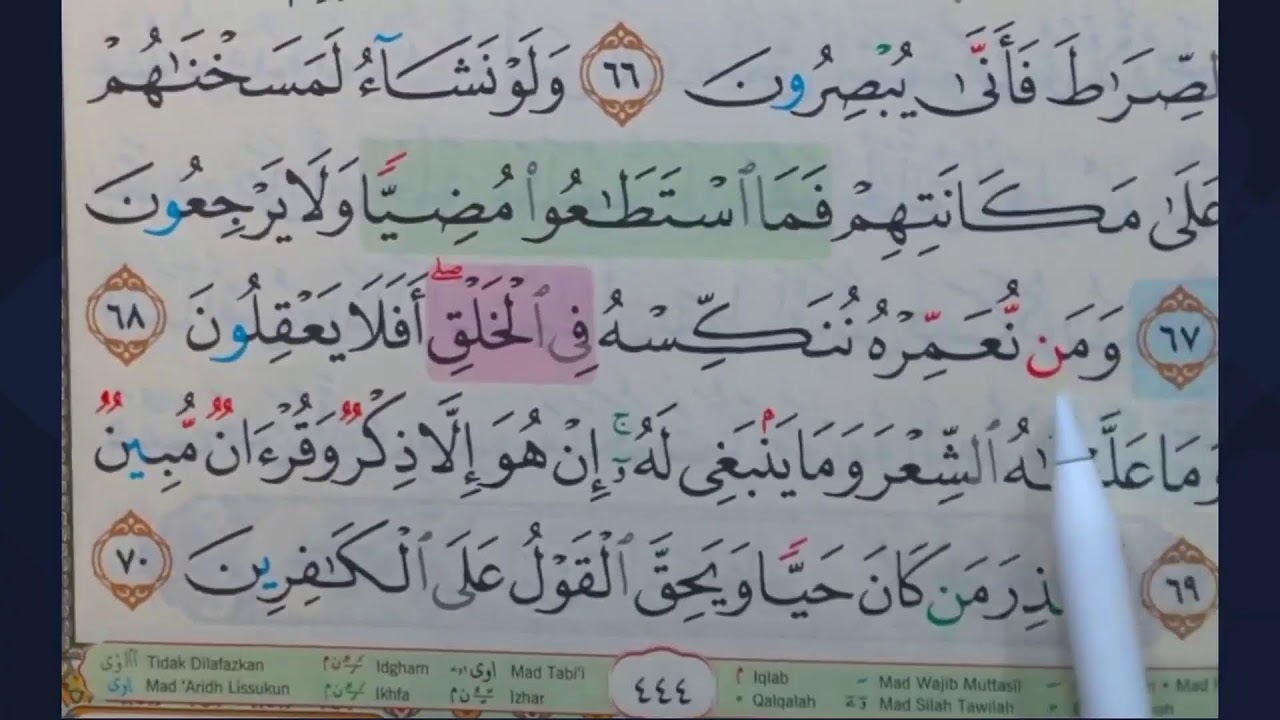 لصِّرَٰطَ فَأَنَّىٰ يُبْصِرُونَ ٦٦ وَلَوْ نَشَآءُ لَمَسَخْنَٰهُمْ
عَلَىٰ مَكَانَتِهِمْ فَمَا ٱسْتَطَٰعُوا۟ مُضِيًّا وَلَا يَرْجِعُونَ
٦٧ وَمَن نُّعَمِّرْهُ نُنَكِّسْهُ فِى ٱلْخَلْقِ ۖ أَفَلَا يَعْقِلُونَ ٦٨
وَمَا ٱلشِّعْرَ وَمَا يَنۢبَغِى لَهُۥٓ ۚ إِنْ هُوَ إِلَّا ذِكْرٌ وَقُرْءَانٌ مُّبِينٌ
٦٩ مَن كَانَ حَيًّا وَيَحِقَّ ٱلْقَوْلُ عَلَى ٱلْكَٰفِرِينَ ٧٠
Tidak Dilafazkan Idgham Mad Tabi'i ٤٤٤ Iqlab Mad Wajib Muttasil
Mad 'Aridh Lissukun Ikhfa Izhar Qalqalah Mad Silah Tawilah